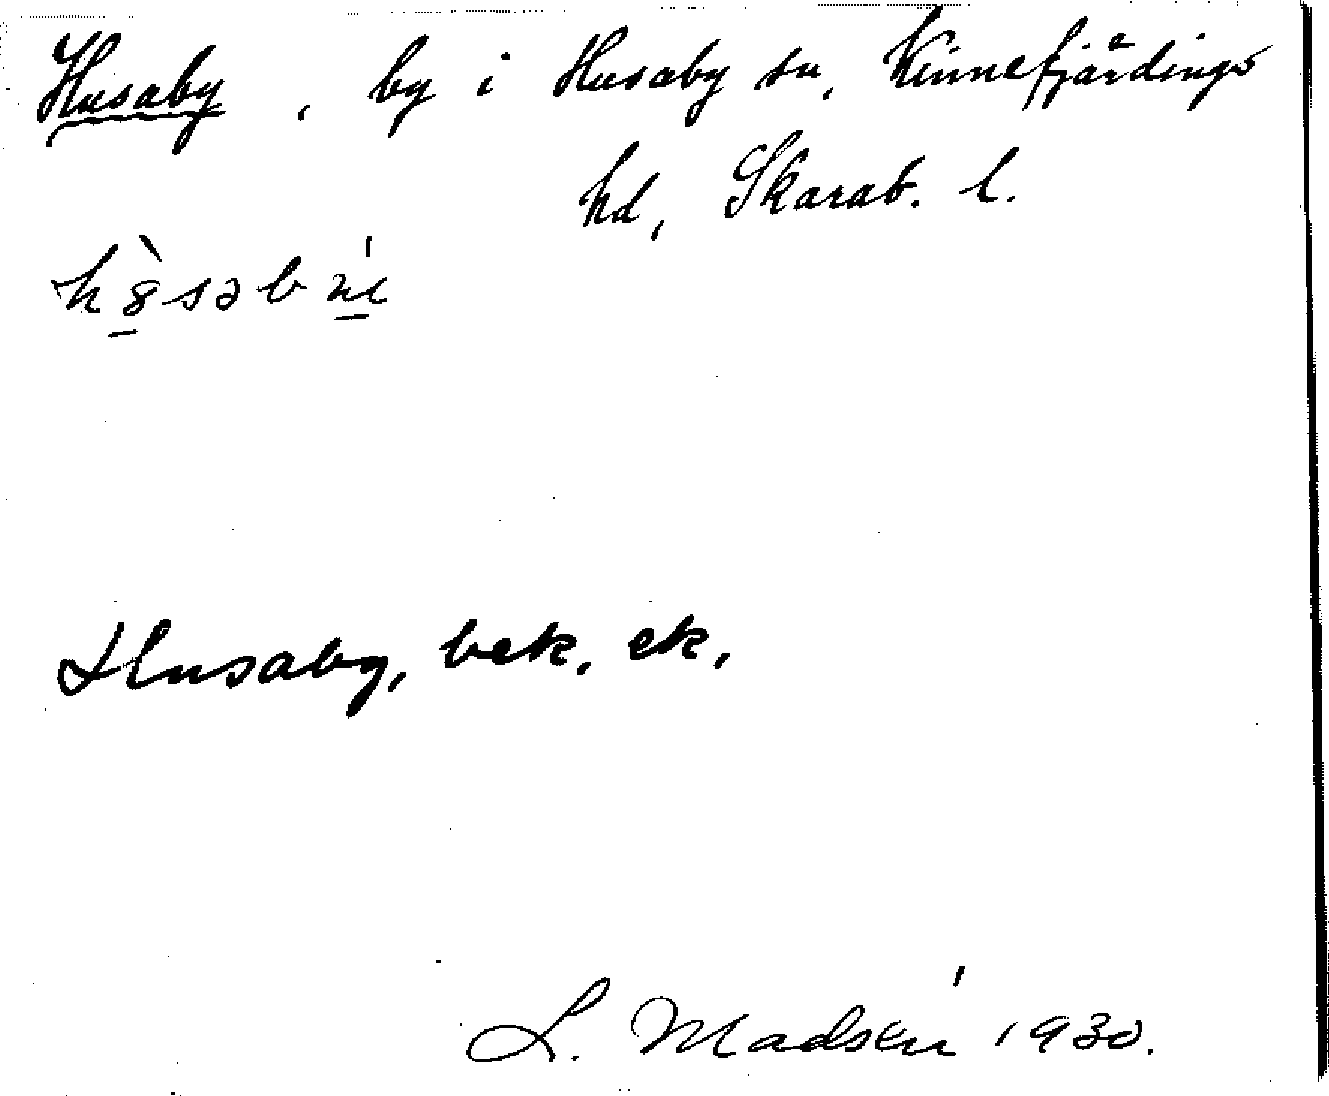 Husaby, by i Husaby sn, Kinnefjärdings
hd, Skarab. l.
Husaby, bek. ek.
L. Madsén 1930.